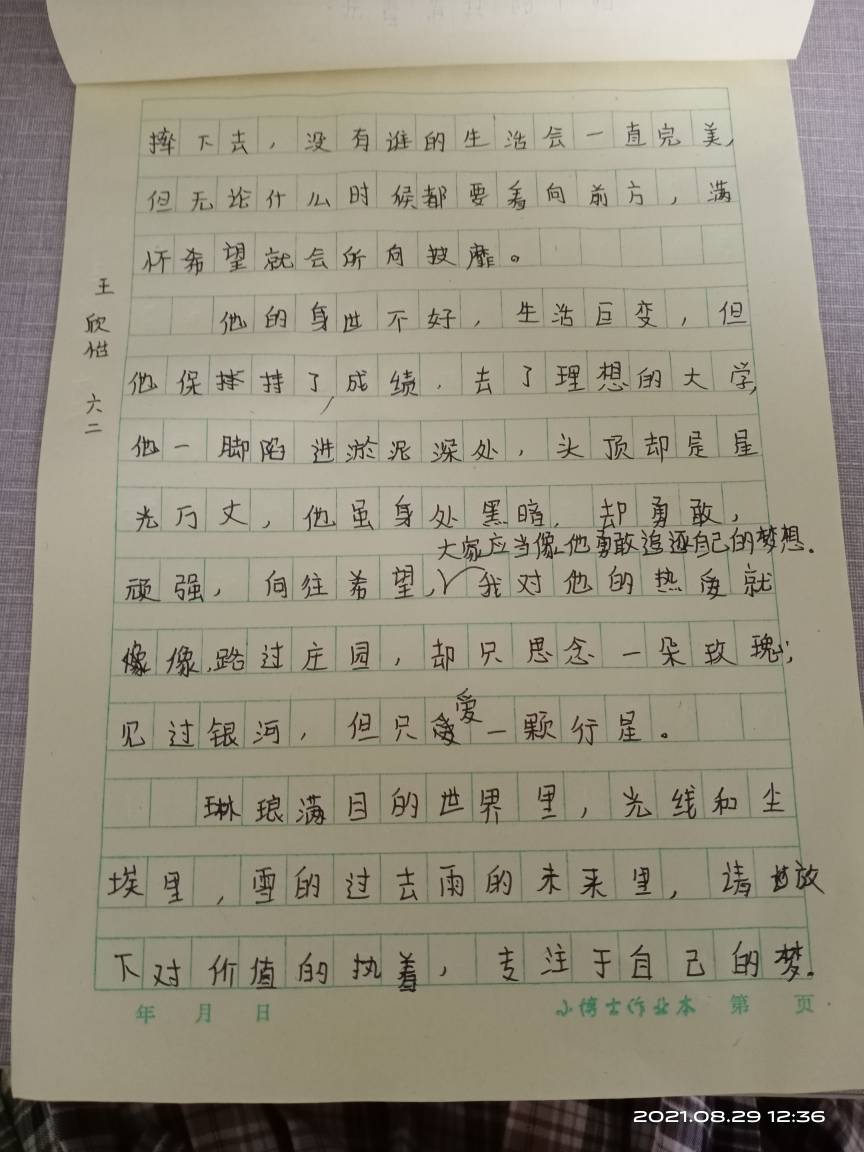 摔下去，没有谁的生活会一直完美，
但无论什么时候都要看向前方，满
怀希望就会所向披靡。
他的身世不好，生活巨变，但
他保持了成绩，去了理想的大学，
他一脚陷进淤泥深处，头顶却是星
光万丈，他虽身处黑暗，却勇敢，
大家应当像他勇敢追逐自己的梦想。
顽强，向往希望，我对他的热度就
像像路过庄园，却只思念一朵玫瑰；
见过银河，但只爱一颗行星。
琳琅满目的世界里，光线和尘
埃里，雪的过去雨的未来里，请放
下对价值的执着，专注于自己的梦。
王欣怡 六二
年 月 日 小博士作业本 第 页
2021.08.29 12:36